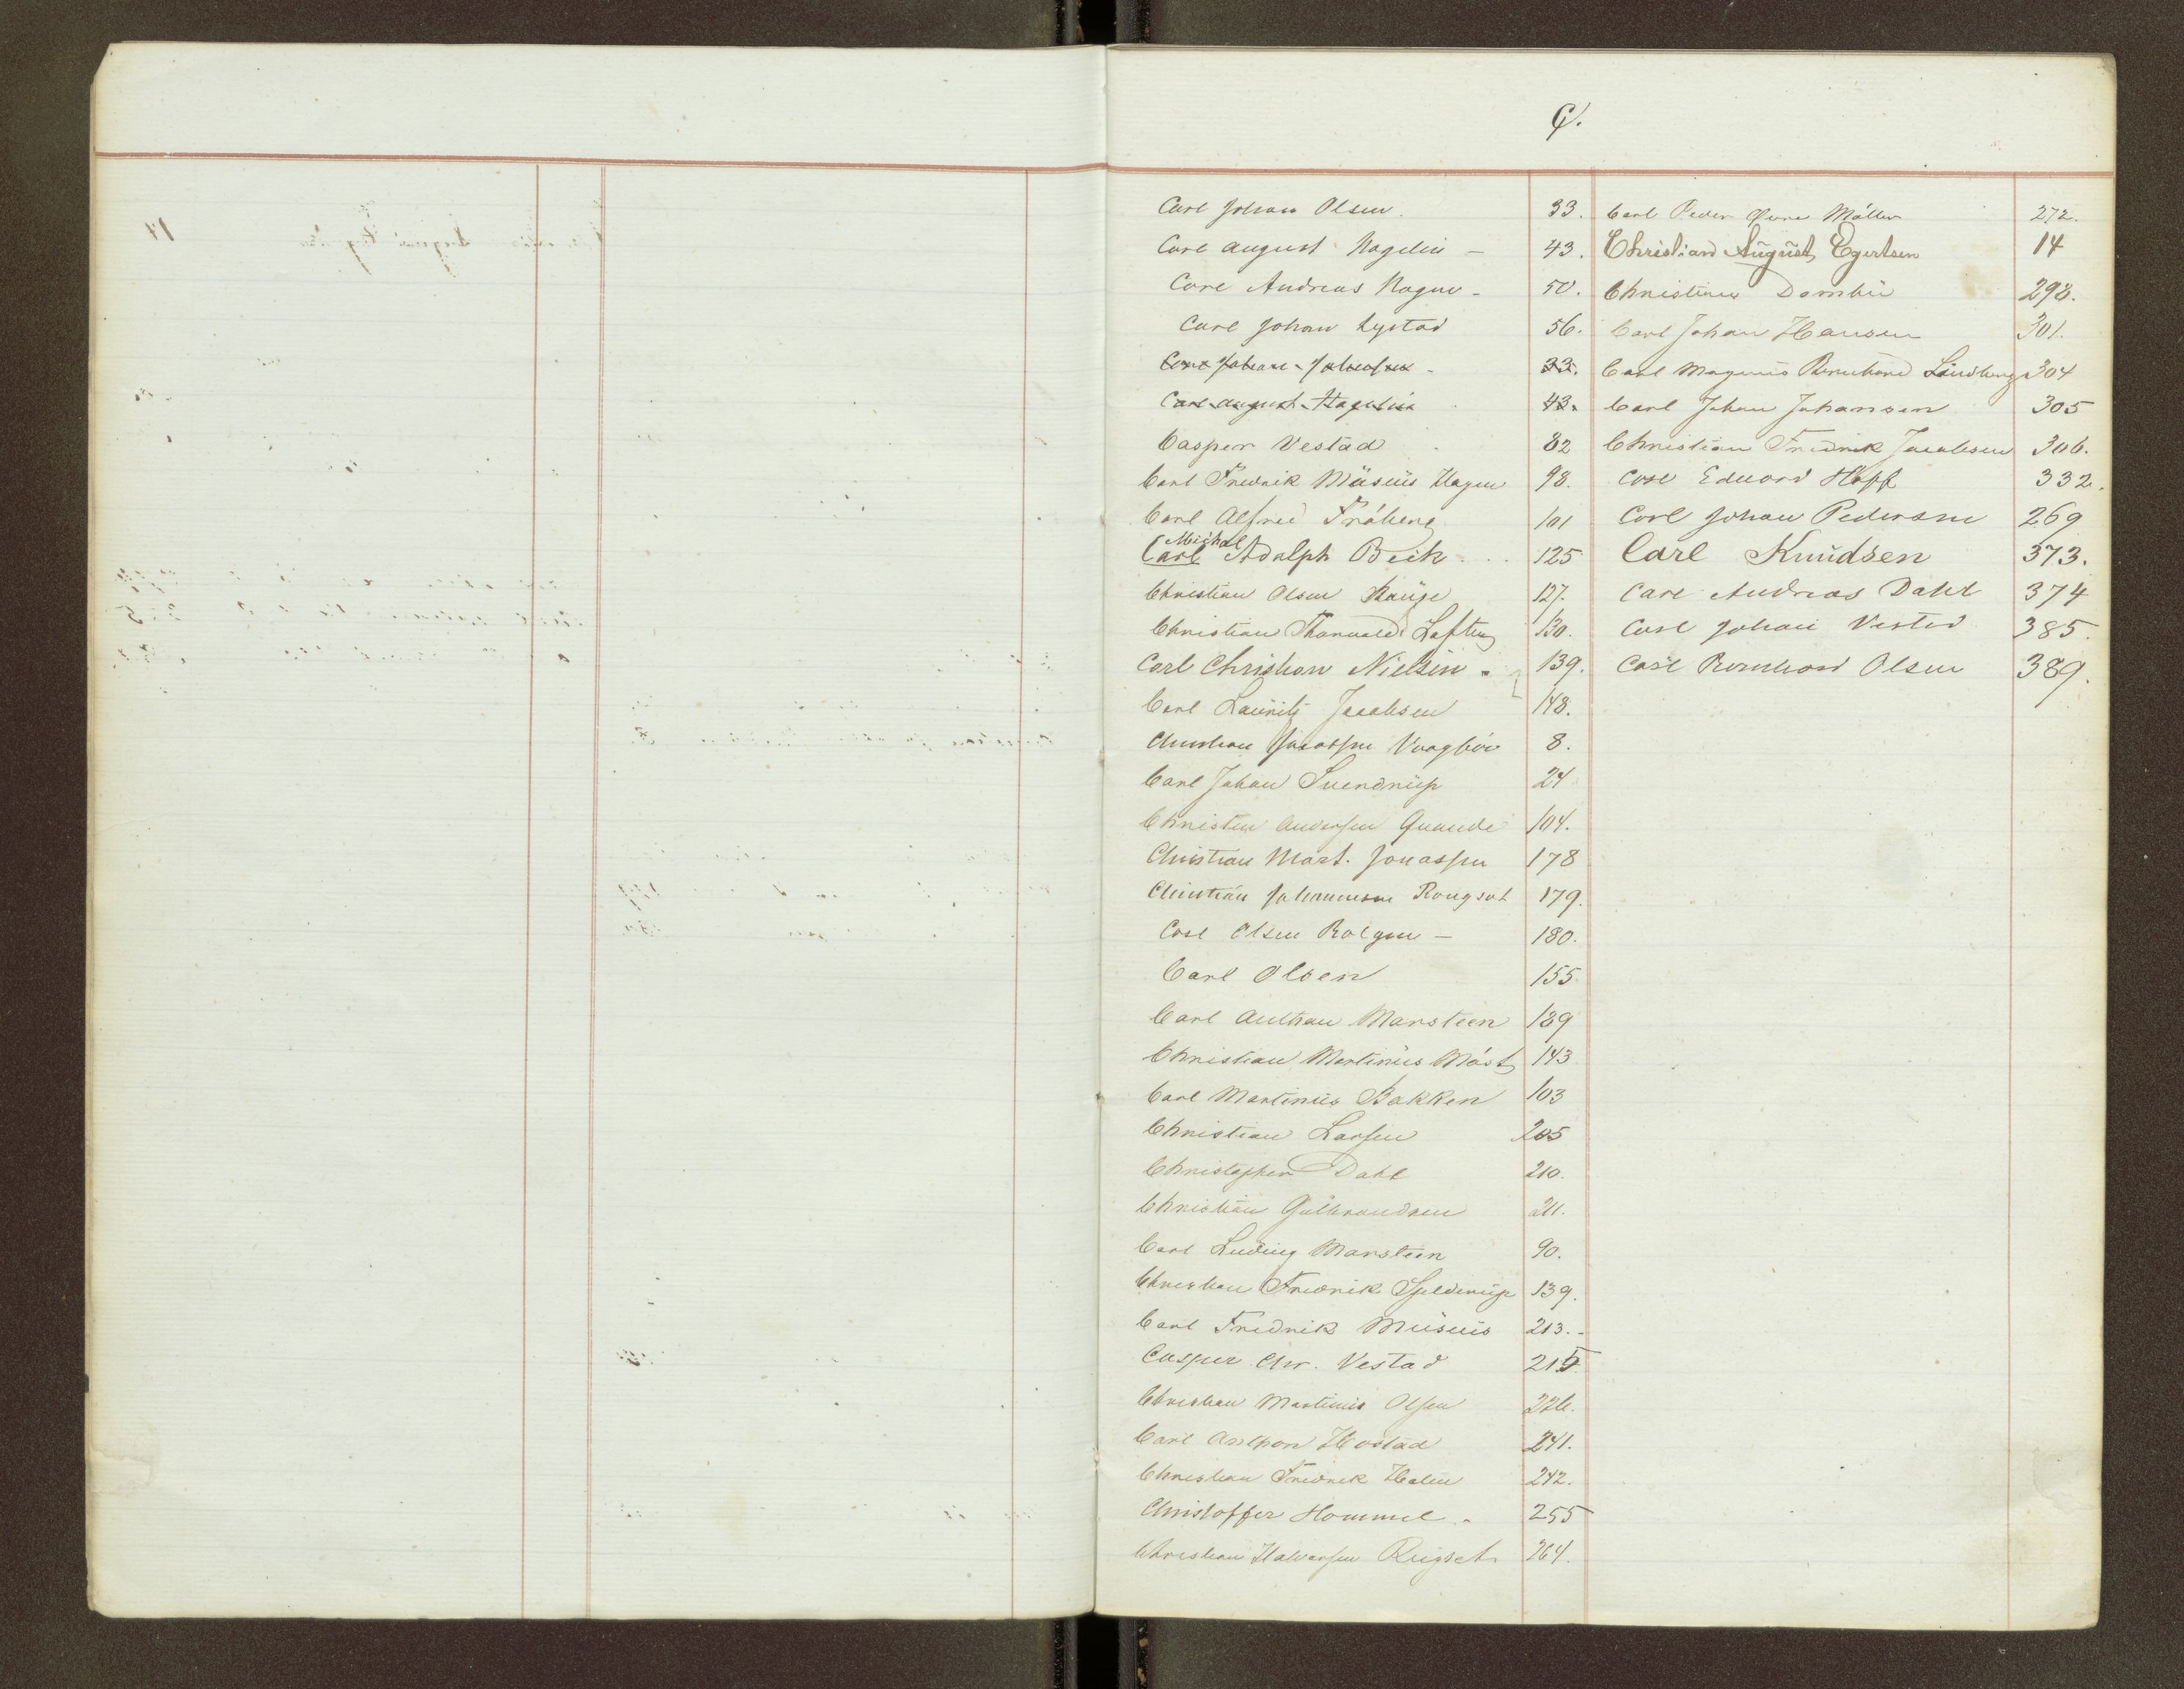 C.
Carl Johan Olsen. 33.
Carl August Nagelin - 43.
Carl Andreas 50.
Carl Johan Lystad 56.
Carl Johan Johansen - 33.
Carl August Hagelin 43.
Casper Vestad 82
Carl Fredrik Müsüüs Hagen 98.
Carl Alfred Fróberg 101
Michal
Carl Adolph Beck 125
Christian Olsen 127.
Christian Thorvald Lofthus 130.
Carl Christian Nielsen 139.
Carl Lauritz Jacobsen 148.
Christian Jacobsen 8.
Carl Johan Svendrüp 24
Christen Andersen 104.
Christian Mart. Jonassen 178
Christian Johannesen 179.
Carl Olsen 180.
Carl Olsen 155
Carl Anthon Marsteen 189
Christian Martinüs 143
Carl Martinüs Bakken 103
Christian Larsen 205
Christopher Dahl 210.
Christian Gülbrandsen 211.
Carl Ludvig Marsteen 90.
Christian Fredrik 139.
Carl Fredrik Müsüüs 213.-
Casper Chr. Vestad 215
Christian Martinus Olsen 226.
Carl Anthon Hostad 241.
Christian Fredrik Holm 242.
Christoffer Hommel - 255
Christian Halvorsen 264.
Carl Peder Møller 272.
Christian August Egertsen 14
Christinus Dombü 298.
Carl Johan Hansen 301.
Carl Magnus Bernhard Lindberg 304
Carl Johan Johansen 305
Christian Fredrik Jacobsen 306.
Carl Eduard Hoff 332.
Carl Johan Pedersen 269
Carl Knudsen 373.
Carl Andreas Dahl 374
Carl Johan Vestad 385.
Carl Bernhard Olsen 389.